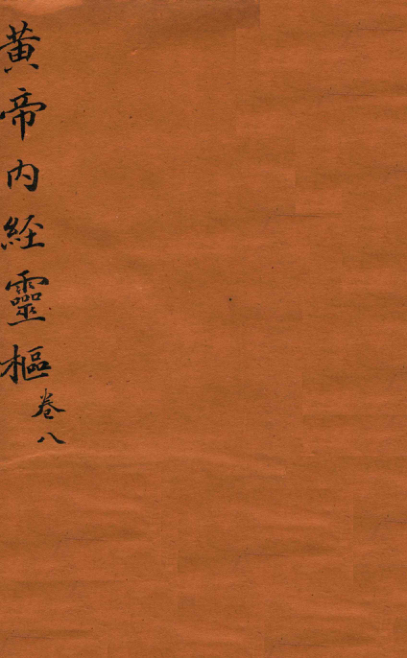 黄帝内経靈樞
卷八